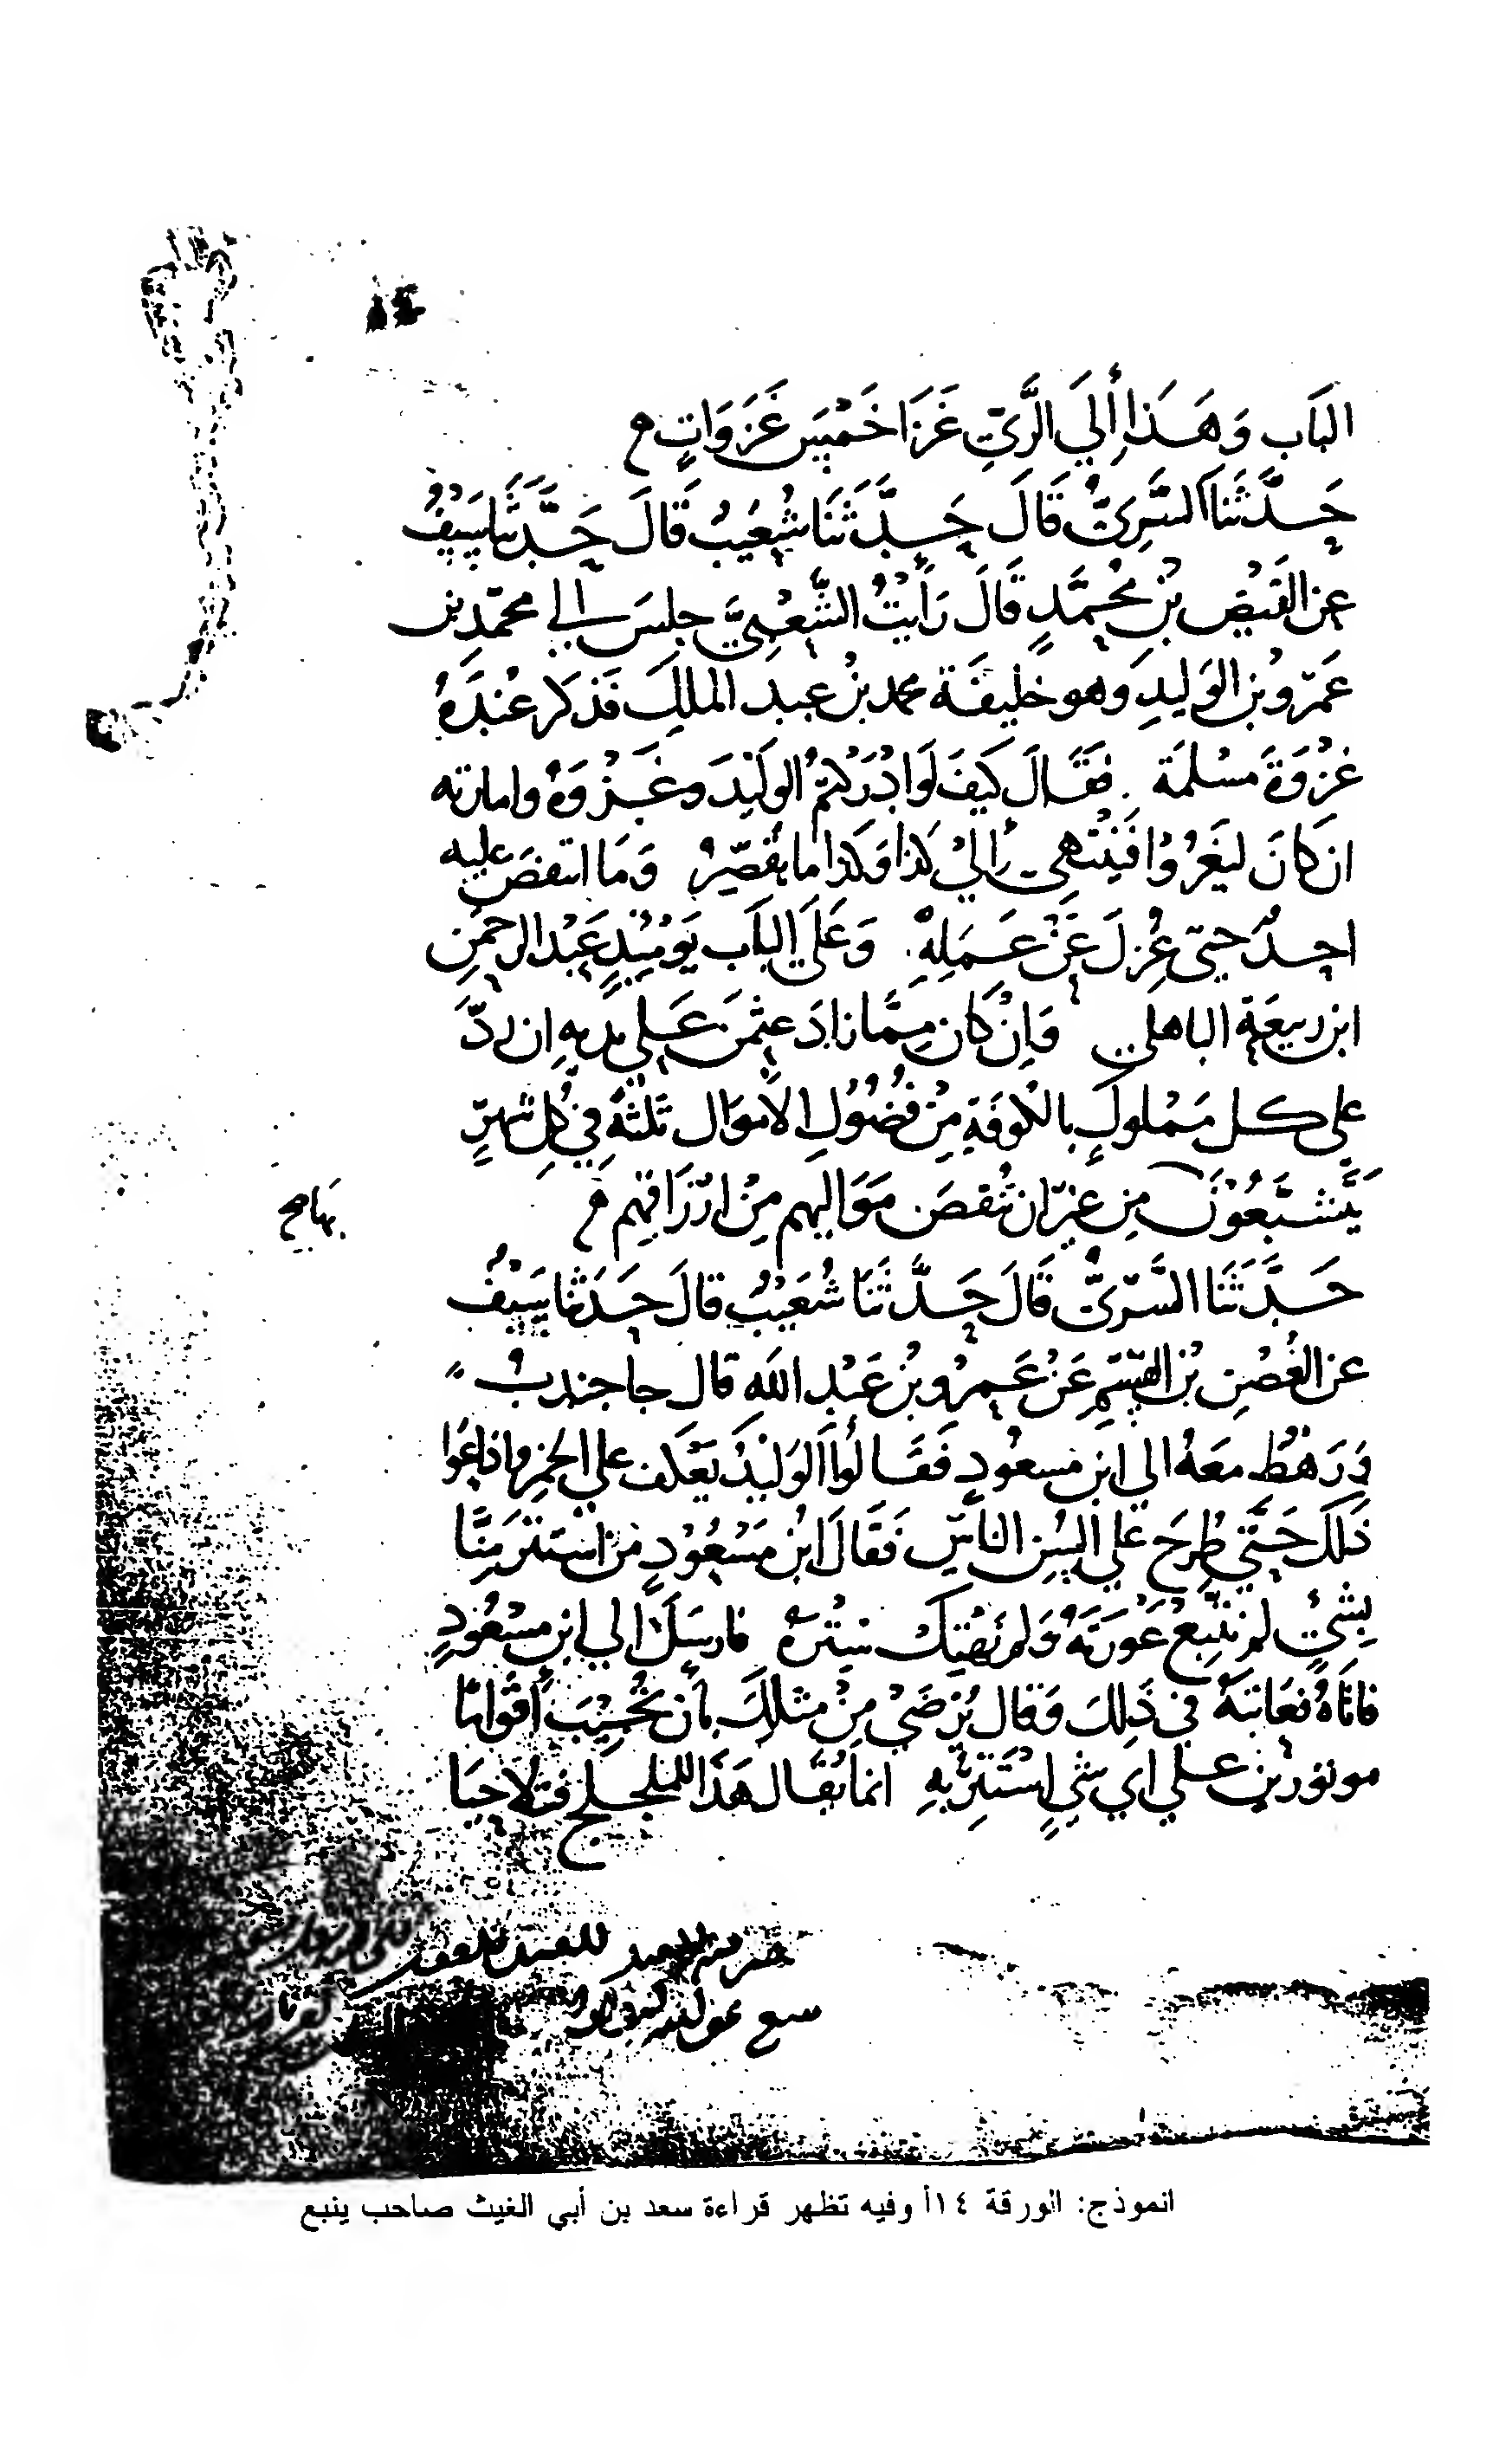 ١٤
الباب وَهَذا إلَي الرَّيّ غَزَا خَمْسَ غَزَوَاتٍ
حَدَّثَنَا السَّرِيُّ قَالَ حَدَّثَنَا شُعَيْبُ قَالَ حَدَّثنا سَيْفُ
عن الفَيْضِ بْنِ مُحَمَّدٍ قَالَ رَأَيْتُ الشَّعْبِيَّ جلسَ الي محمّد بن
عَمْرو بْن الوَليدِ وَهو خليفَة محمد بن عبد الملِكِ فَذكَر عنْدَهُ
غزْوَةَ مَسْلمَة فَقَالَ كَيْفَ لَوَادْرَكْتُمُ الوَليْدَ وغَزْوَهُ وامارته
ان كَانَ ليَغْزُوا فَيَنْتَهِي إلي كذا وَكذا ما يُقَصِّرُ وَمَا انتقضَ عليه
احدٌ حتي عُزِلَ عَنْ عَمَلِهِ وَعَلَي البَاب يَوْمَئِذٍ عَبْدُ الرحمنِ
ابن ربيعَة الباهلي وَإِنْ كَان مِمَّا زادَ عثمنَ عَلي يديهِ ان ردَّ
علي كل مَمْلوكٍ بالكُوفَةِ مِنْ فُضُوُلِ الأموَال ثلثة فِي كُلِ شهرٍ
يَتَّسَّعُوْنَ مِن غيْر ان يُنقصَ مَوَاليهم مِنْ ارْزَاقِهِم
بها صح
حَدَّثَنَا السَّرِيُّ قَالَ حَدَّثَنَا شُعَيْبُ قالَ حَدَثنا سَيْفُ
عن الغُصْنِ بْنِ القسمِ عَنْ عَمْرِو بْنِ عَبْدِ اللّه قال جا جندبُ
وَرَهْطُ معَهُ الي ابنِ مَسعُودٍ فَقَالُوا الوَليْدُ يَعْكف علي الخمِر واذاعُوا
ذَلكَ حَتَّي طُرِحَ علي السُن النَاسِ فَقَالَ ابْن مَسْعُوْدٍ مَن استَتَرَ مِنَّا
بِشيْءٍ لم نَتَّبِعْ عَوْرَتَهُ وَلم نَهْتِكْ سِتْرَهُ فارسَلَ الي ابنِ مسْعُودٍ
فاتَاهُ فعَاتبَهُ في ذَلِكَ وَقال يُرْضَيْ مِنْ مثلِكَ بأن تُجِيْبَ أقْوامًا
موتورينَ علي اي شيءٍ اسْتَتِرُ بِهِ انما يُقال هَذا
سعد
انموذج: الورقة ١٤أ وفيه تظهر قراءة سعد بن أبي الغيث صاحب ينبع